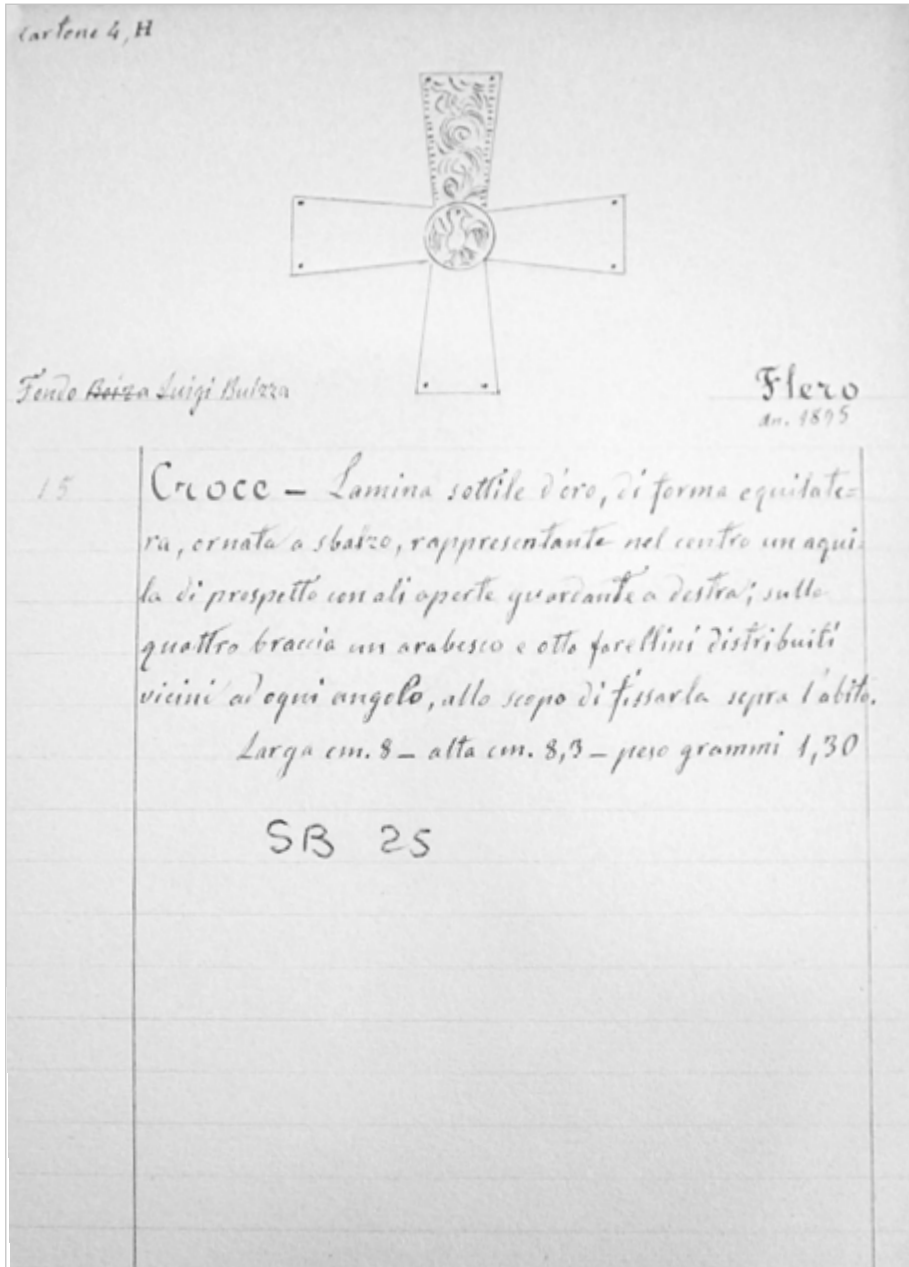 Cartone 4, H
Fondo Boiza Luigi Bulzza
Flero
an. 1895
15
Croce – Lamina sottile d'oro, di forma equilate=
ra, ornata a sbalzo, rappresentante nel centro un aqui-
la di prospetto con ali aperte guardante a destra; sulle
quattro braccia un arabesco e otto forellini distribuiti
vicini ad ogni angolo, allo scopo di fissarla sopra l'abito.
Larga cm. 8 – alta cm. 8,3 – peso grammi 1,30
SB 25